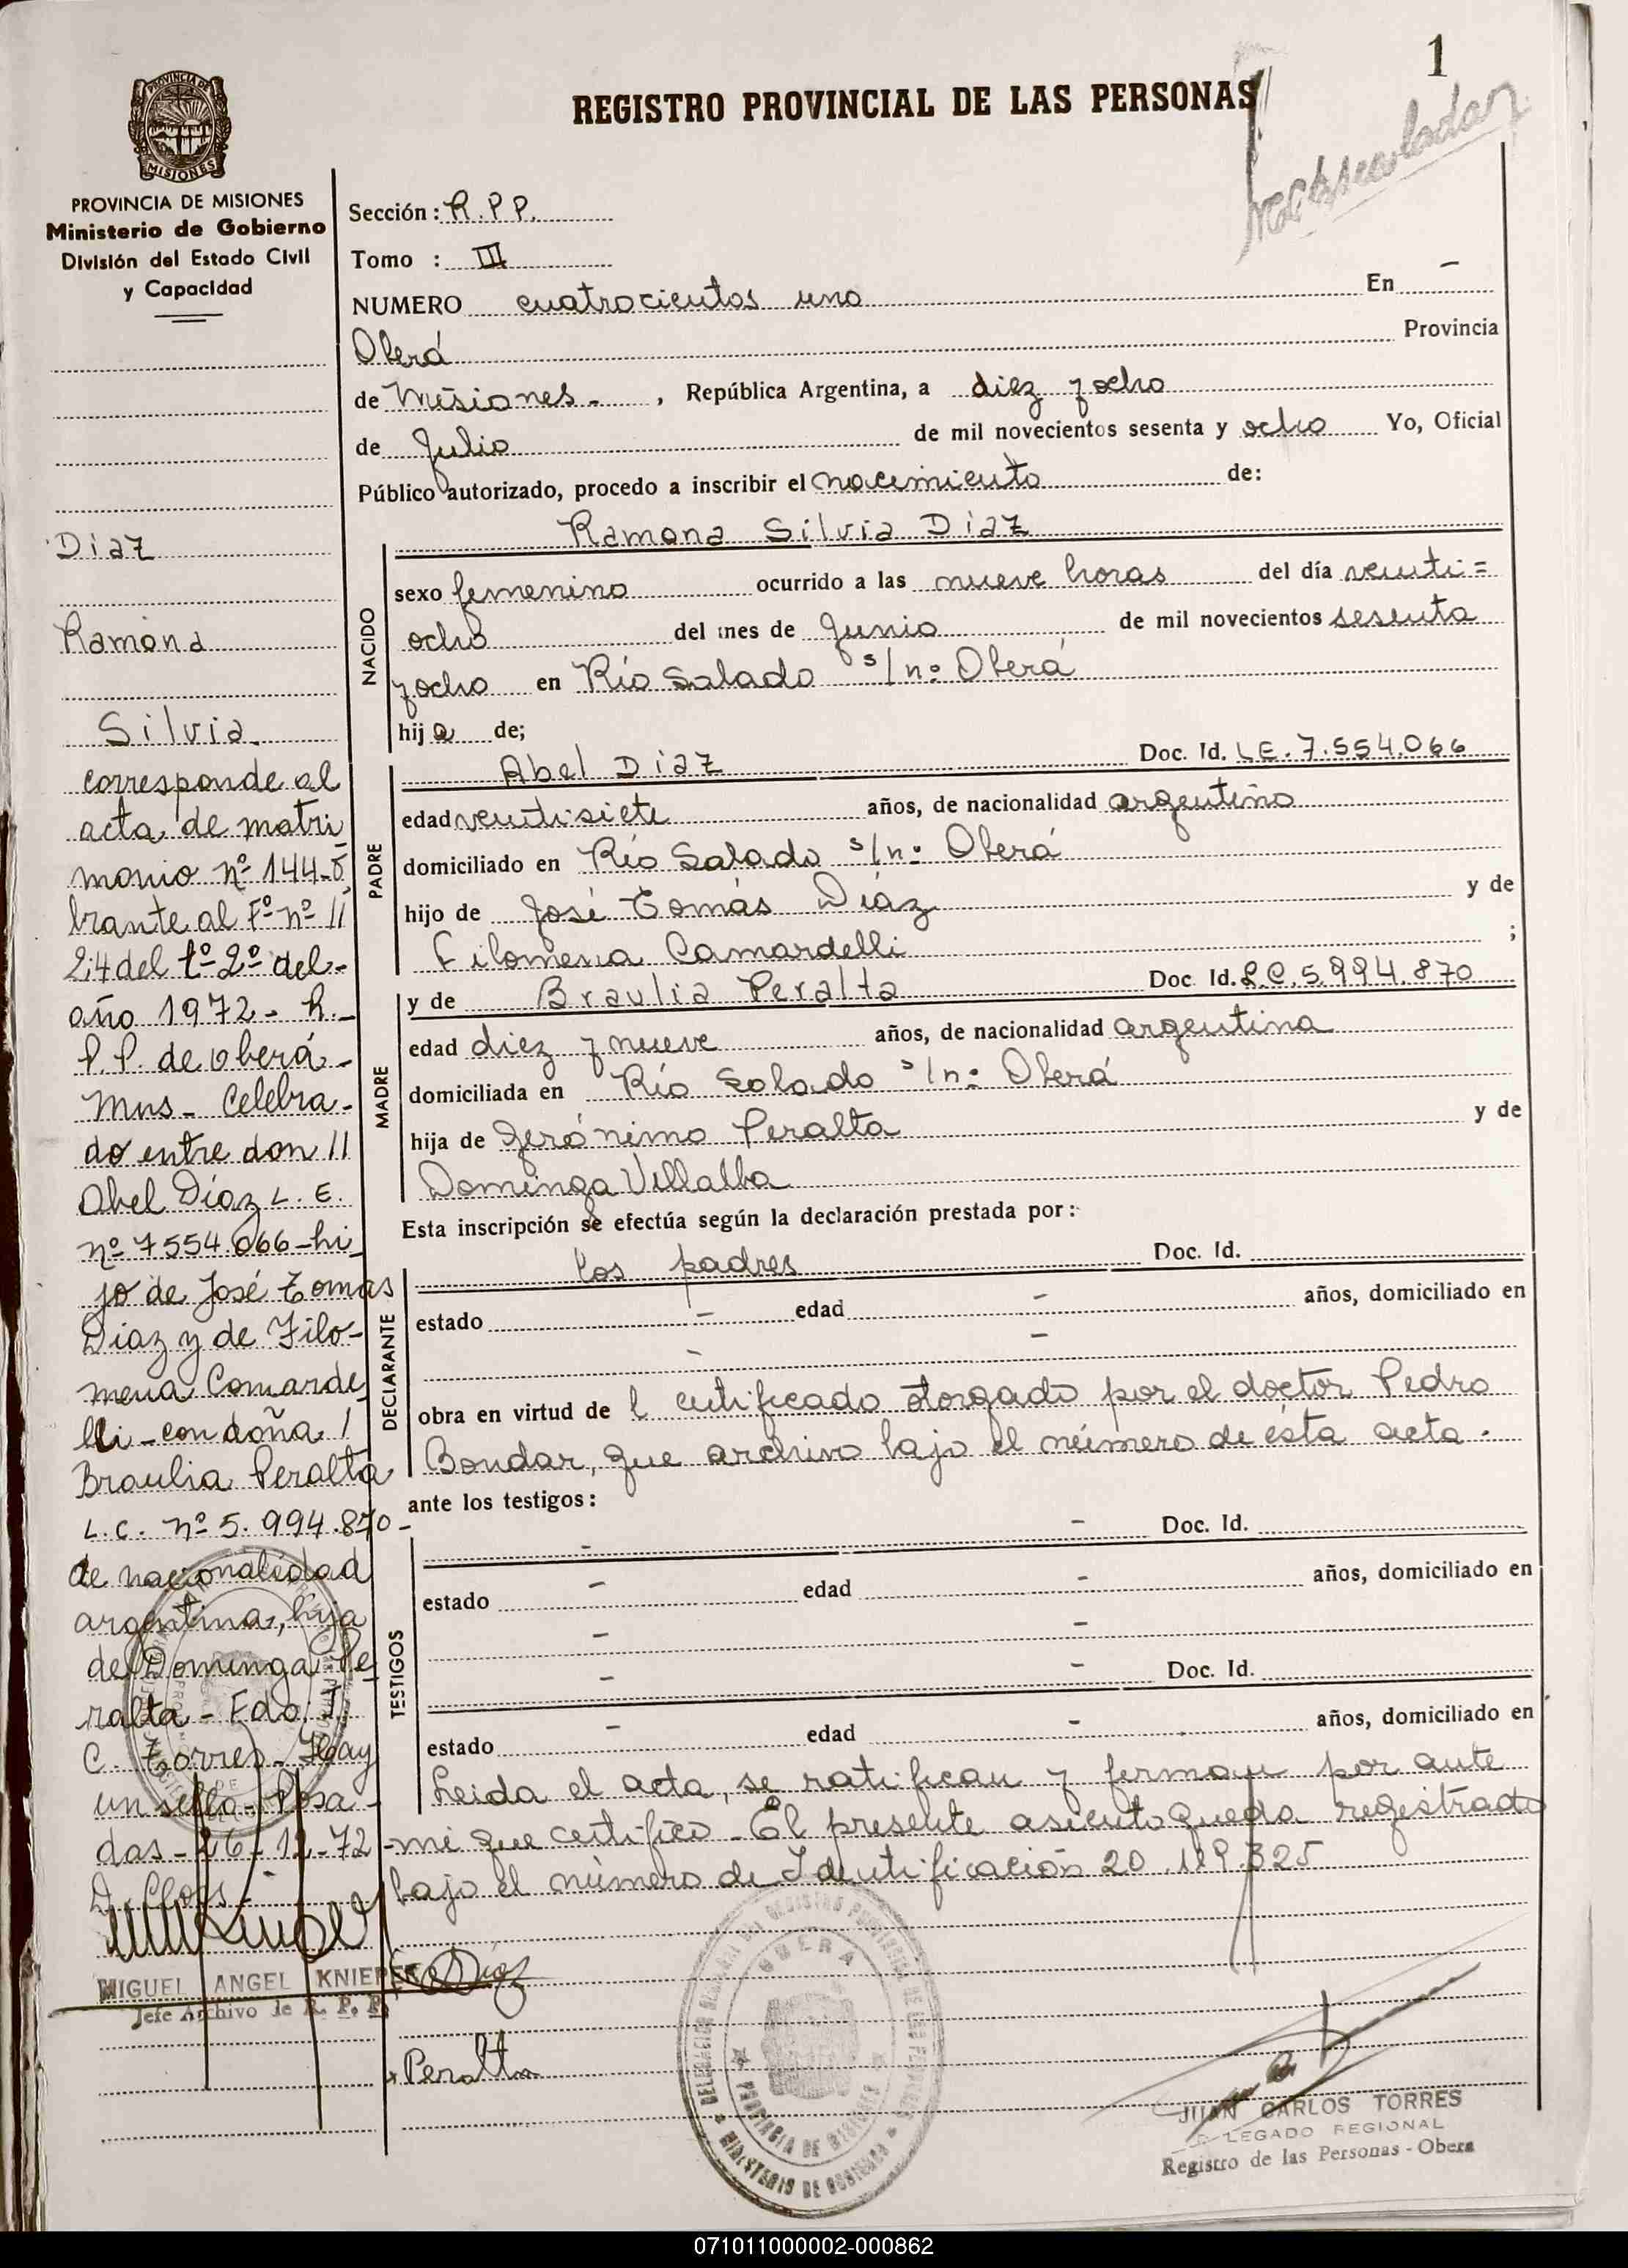 1
REGISTRO PROVINCIAL DE LAS PERSONAS
PROVINCIA DE
MISIONES
PROVINCIA DE MISIONES
Ministerio de Gobierno
División del Estado Civil
y Capacidad
Sección: R.P.P.
Tomo : III
NUMERO cuatrocientos uno En -
Oberá Provincia
de Misiones - , República Argentina, a diez y ocho
de Julio de mil novecientos sesenta y ocho Yo, Oficial
Público autorizado, procedo a inscribir el nacimiento de:
Ramona Silvia Díaz
NACIDO
sexo femenino ocurrido a las nueve horas del día veinti=
ocho del mes de Junio de mil novecientos sesenta
y ocho en Río Salado s/nº Oberá
hija de;
PADRE
Abel Díaz Doc. Id. L.E. 7.554.066
edad veintisiete años, de nacionalidad argentino
domiciliado en Río Salado s/nº Oberá
hijo de José Tomás Díaz y de
Filomena Camardelli ;
MADRE
y de Braulia Peralta Doc. Id. L.C. 5.994.870
edad diez y nueve años, de nacionalidad argentina
domiciliada en Río Salado s/nº Oberá
hija de Jerónimo Peralta y de
Dominga Villalba
Esta inscripción se efectúa según la declaración prestada por:
DECLARANTE
los padres Doc. Id.
estado - edad - años, domiciliado en
- -
obra en virtud de l certificado otorgado por el doctor Pedro
Bondar, que archivo bajo el número de ésta acta.
ante los testigos:
TESTIGOS
- - Doc. Id.
estado - edad - años, domiciliado en
- -
- - Doc. Id.
estado - edad - años, domiciliado en
Leida el acta, se ratifican y firman por ante
mi que certifico - El presente asiento queda registrado
bajo el número de Identificación 20.119.325
Díaz
Peralta
Díaz
Ramona
Silvia
corresponde al
acta de matri
monio nº 144-o
brante al Fº nº //
24 del tº 2º del-
año 1972- R.-
P.P. de Oberá-
Mns- Celebra-
do entre don //
Abel Díaz L.E.
nº 7554.066-hi
jo de José Tomas
Diaz y de Filo-
mena Comarde
lli-con doña /
Braulia Peralta
L.C. nº 5.994.870-
de nacionalidad
argentina, hija
de Dominga Pe
ralta - Fdo: J.
C. Torres - Hay
un sello - Posa-
das-26-12-72-
MIGUEL ANGEL KNIEPER
Jefe Archivo de R. P. P.
OBERA
PROVINCIA DE MISIONES
MINISTERIO DE GOBIERNO
JUAN CARLOS TORRES
DELEGADO REGIONAL
Registro de las Personas - Obera
071011000002-000862